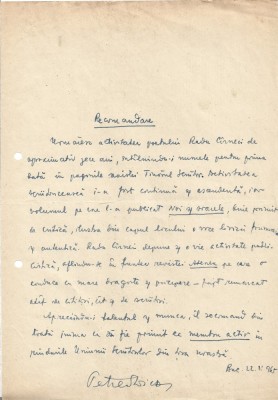 Recomandare
Urmăresc activitatea poetului Radu Cârneci de
aproximativ zece ani, întâlnindu-i numele pentru prima
dată în paginile revistei Tînărul scriitor. Activitatea
scriitoricească i-a fost continuă și ascendentă, iar
volumul pe care l-a publicat Noi și soarele, bine primit
de critică, închis din capul locului o voce lirică
și autentică. Radu Cârneci depune și o vie activitate publi-
cistică, aflându-se în fruntea revistei Ateneu pe care o
conduce cu mare dragoste și pricepere – fapt remarcat
atît de cititori, cît și de scriitori.
Apreciindu-i talentul și munca, îl recomand din
toată inima ca să fie primit ca membru activ în
rîndurile Uniunii Scriitorilor din țara noastră.
Buc.